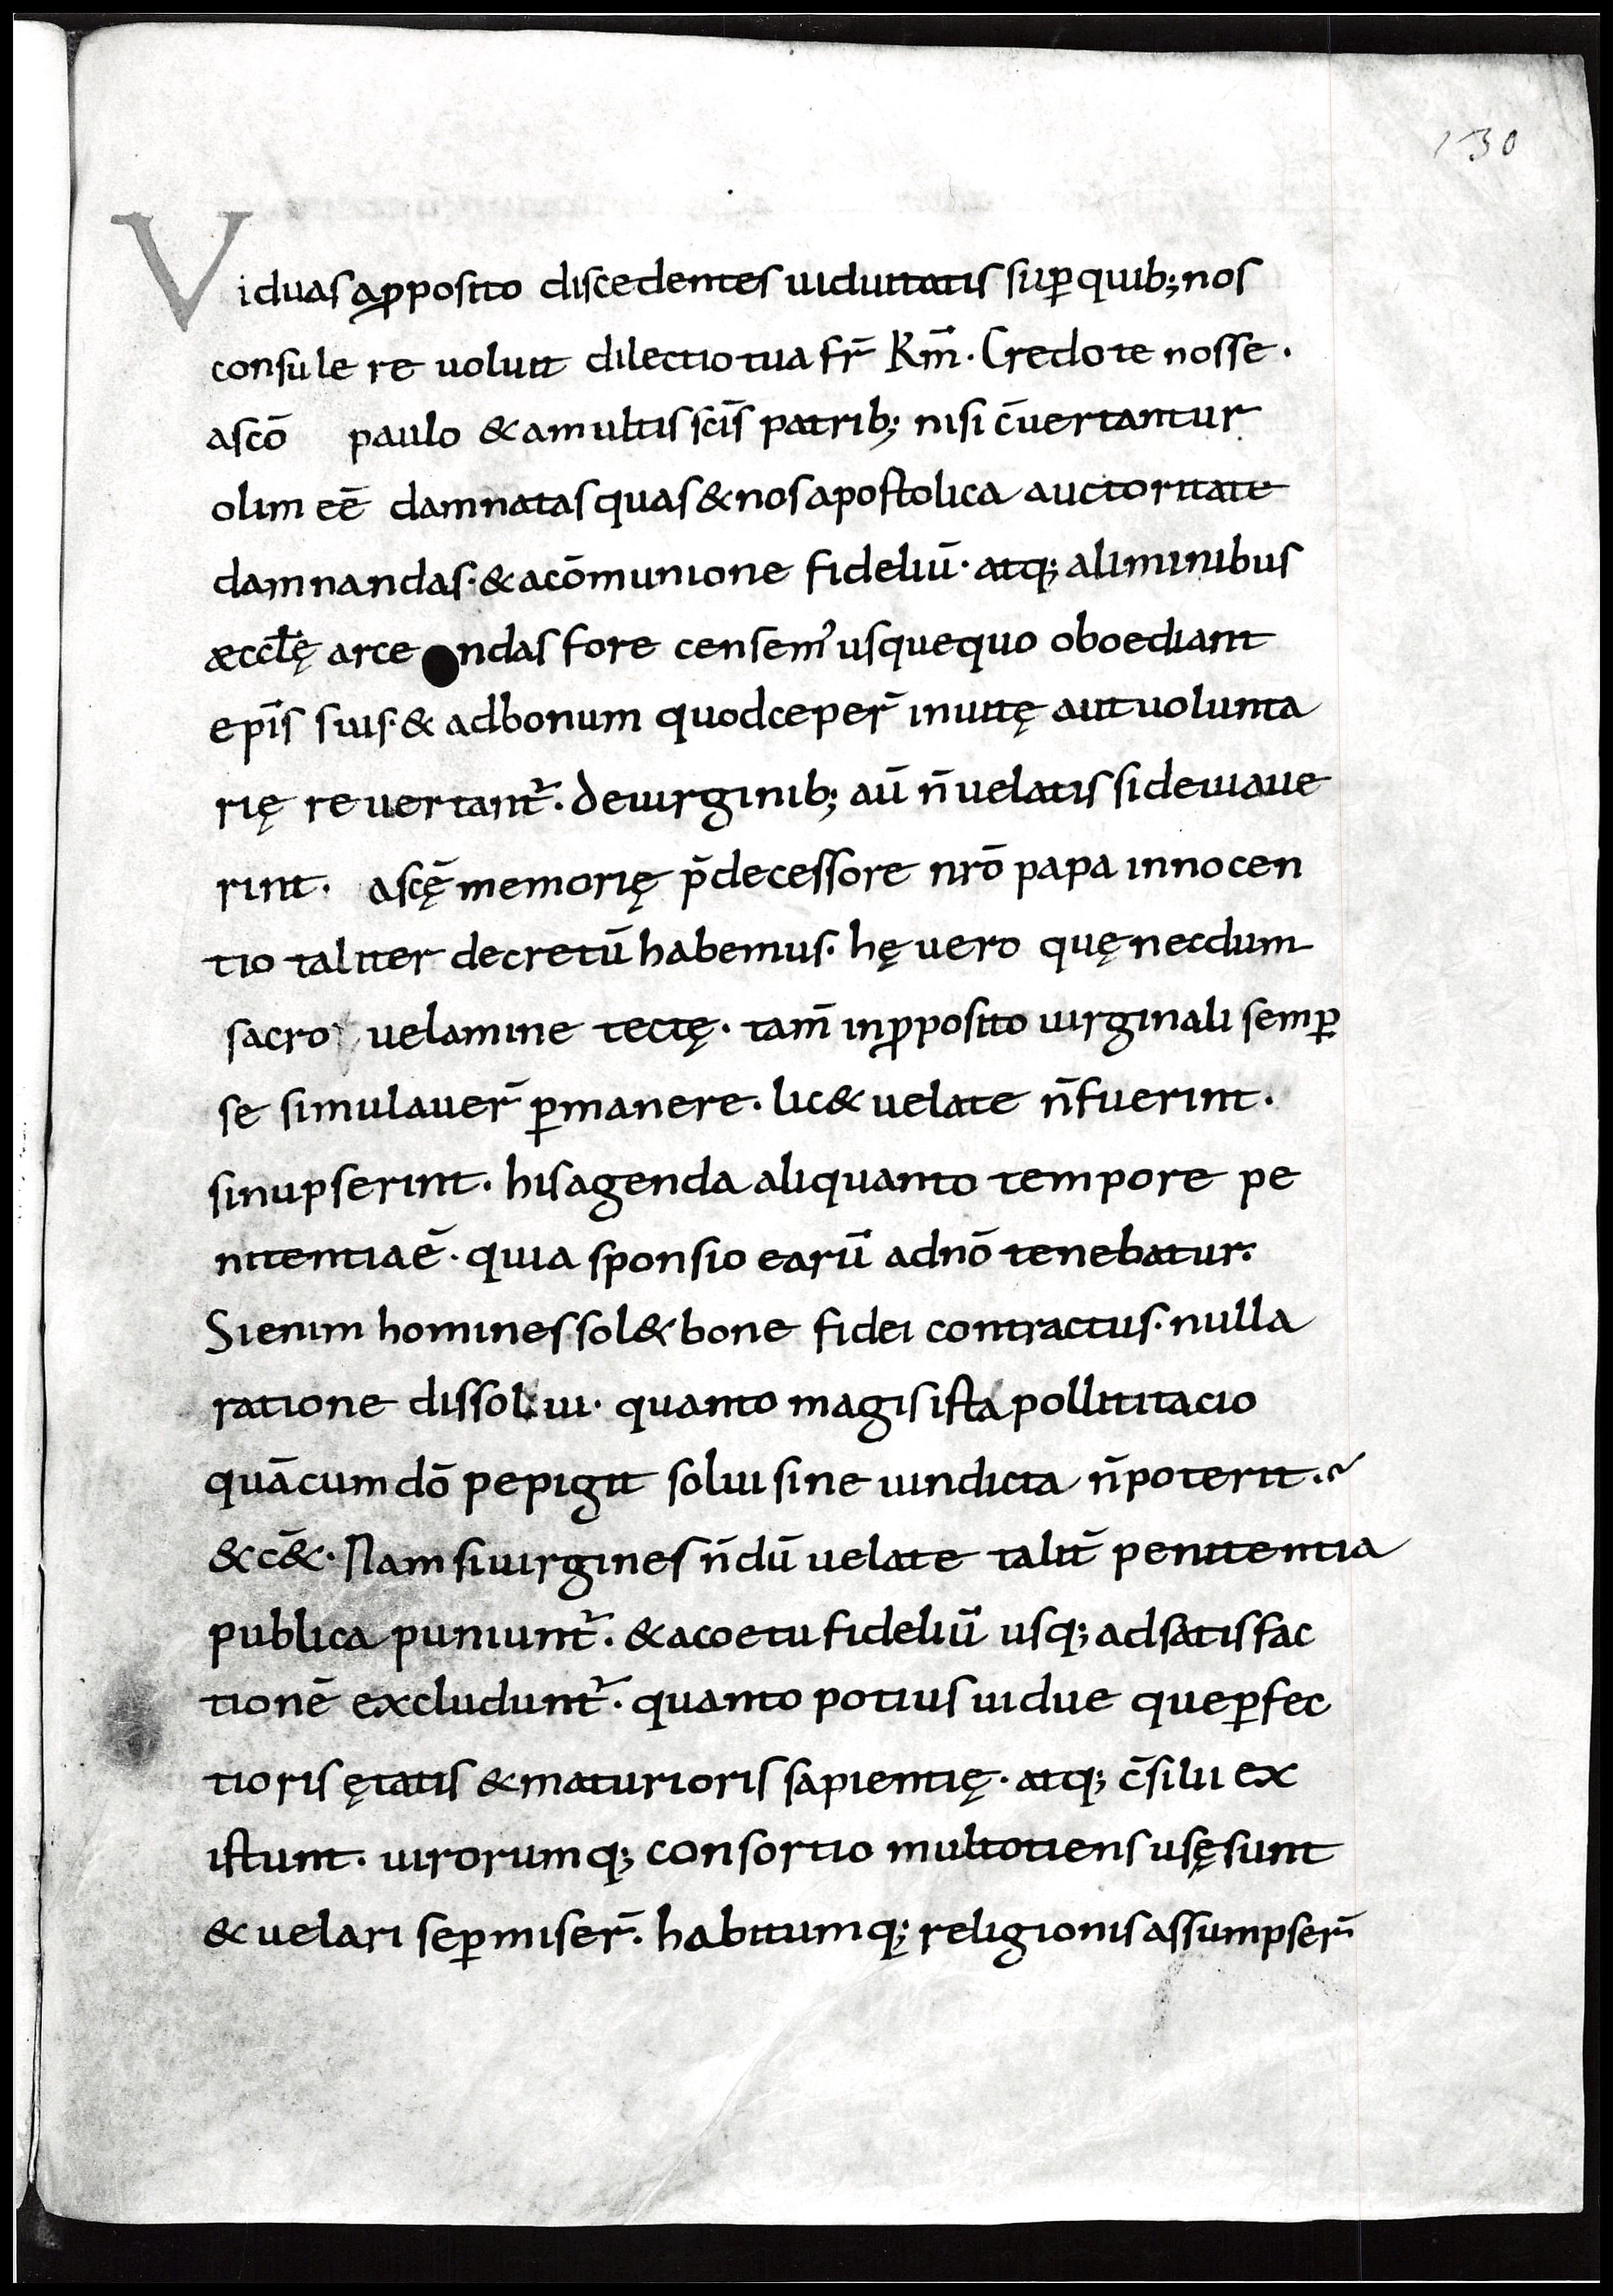 130
Viduas a ꝓposito discedentes uiduitatis suꝑ quib; nos
consulere uoluit dilectio tua fr̄ Km̄. Credo te nosse.
a sc̄o paulo & a multis sc̄is patrib; nisi c̄uertantur
olim eē damnatas quas & nos apostolica auctoritate
damnandas. & a cōmunione fideliū. atq; a liminibus
æccl̄ę arcendas fore censem᾽ usquequo oboediant
ep̄is suis. & ad bonum quod ceper̄ inuitę aut uolunta
rię reuertant᷑. de uirginib; aū n̄ uelatis si deuiaue
rint. a sc̄ę memorię p̄decessore nr̄o papa innocen
tio taliter decretū habemus. hę uero quę necdum
sacro uelamine tectę. tam̄ in ꝓposito uirginali semꝑ
se simulauer̄ ꝑmanere. lic& uelate n̄ fuerint.
si nupserint. his agenda aliquanto tempore pe
nitentia ē. quia sponsio earū a dn̄o tenebatur.
Si enim homines sol& bone fidei contractus. nulla
ratione dissolui. quanto magis ista pollititacio
quā cum dō pepigit solui sine uindicta n̄ poterit.
& c̄&. Nam si uirgines n̄dū uelate talit̄ penitentia
publica puniunt᷑. & a coetu fideliū usq; ad satisfac
tionē excludunt᷑. quanto potius uidue que ꝑfec
tioris ętatis & maturioris sapientię. atq; c̄silii ex
istunt. uirorumq; consortio multotiens usę sunt
& uelari se ꝑmiser̄. habitumq; religionis assumpser̄